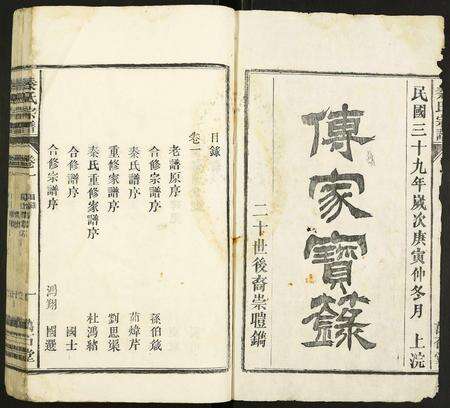 民國三十九年歲次庚寅仲冬月 上浣
傳家寶籙
二十世後裔崇體鐫
目錄
卷一
老譜原序
合修宗譜序 孫伯箴
秦氏譜序 茹煒芹
重修家譜序 劉思渠
秦氏重修家譜序 杜鴻緒
合修宗譜序 國士
合修宗譜序 鴻翔 國選
秦氏宗譜
卷一